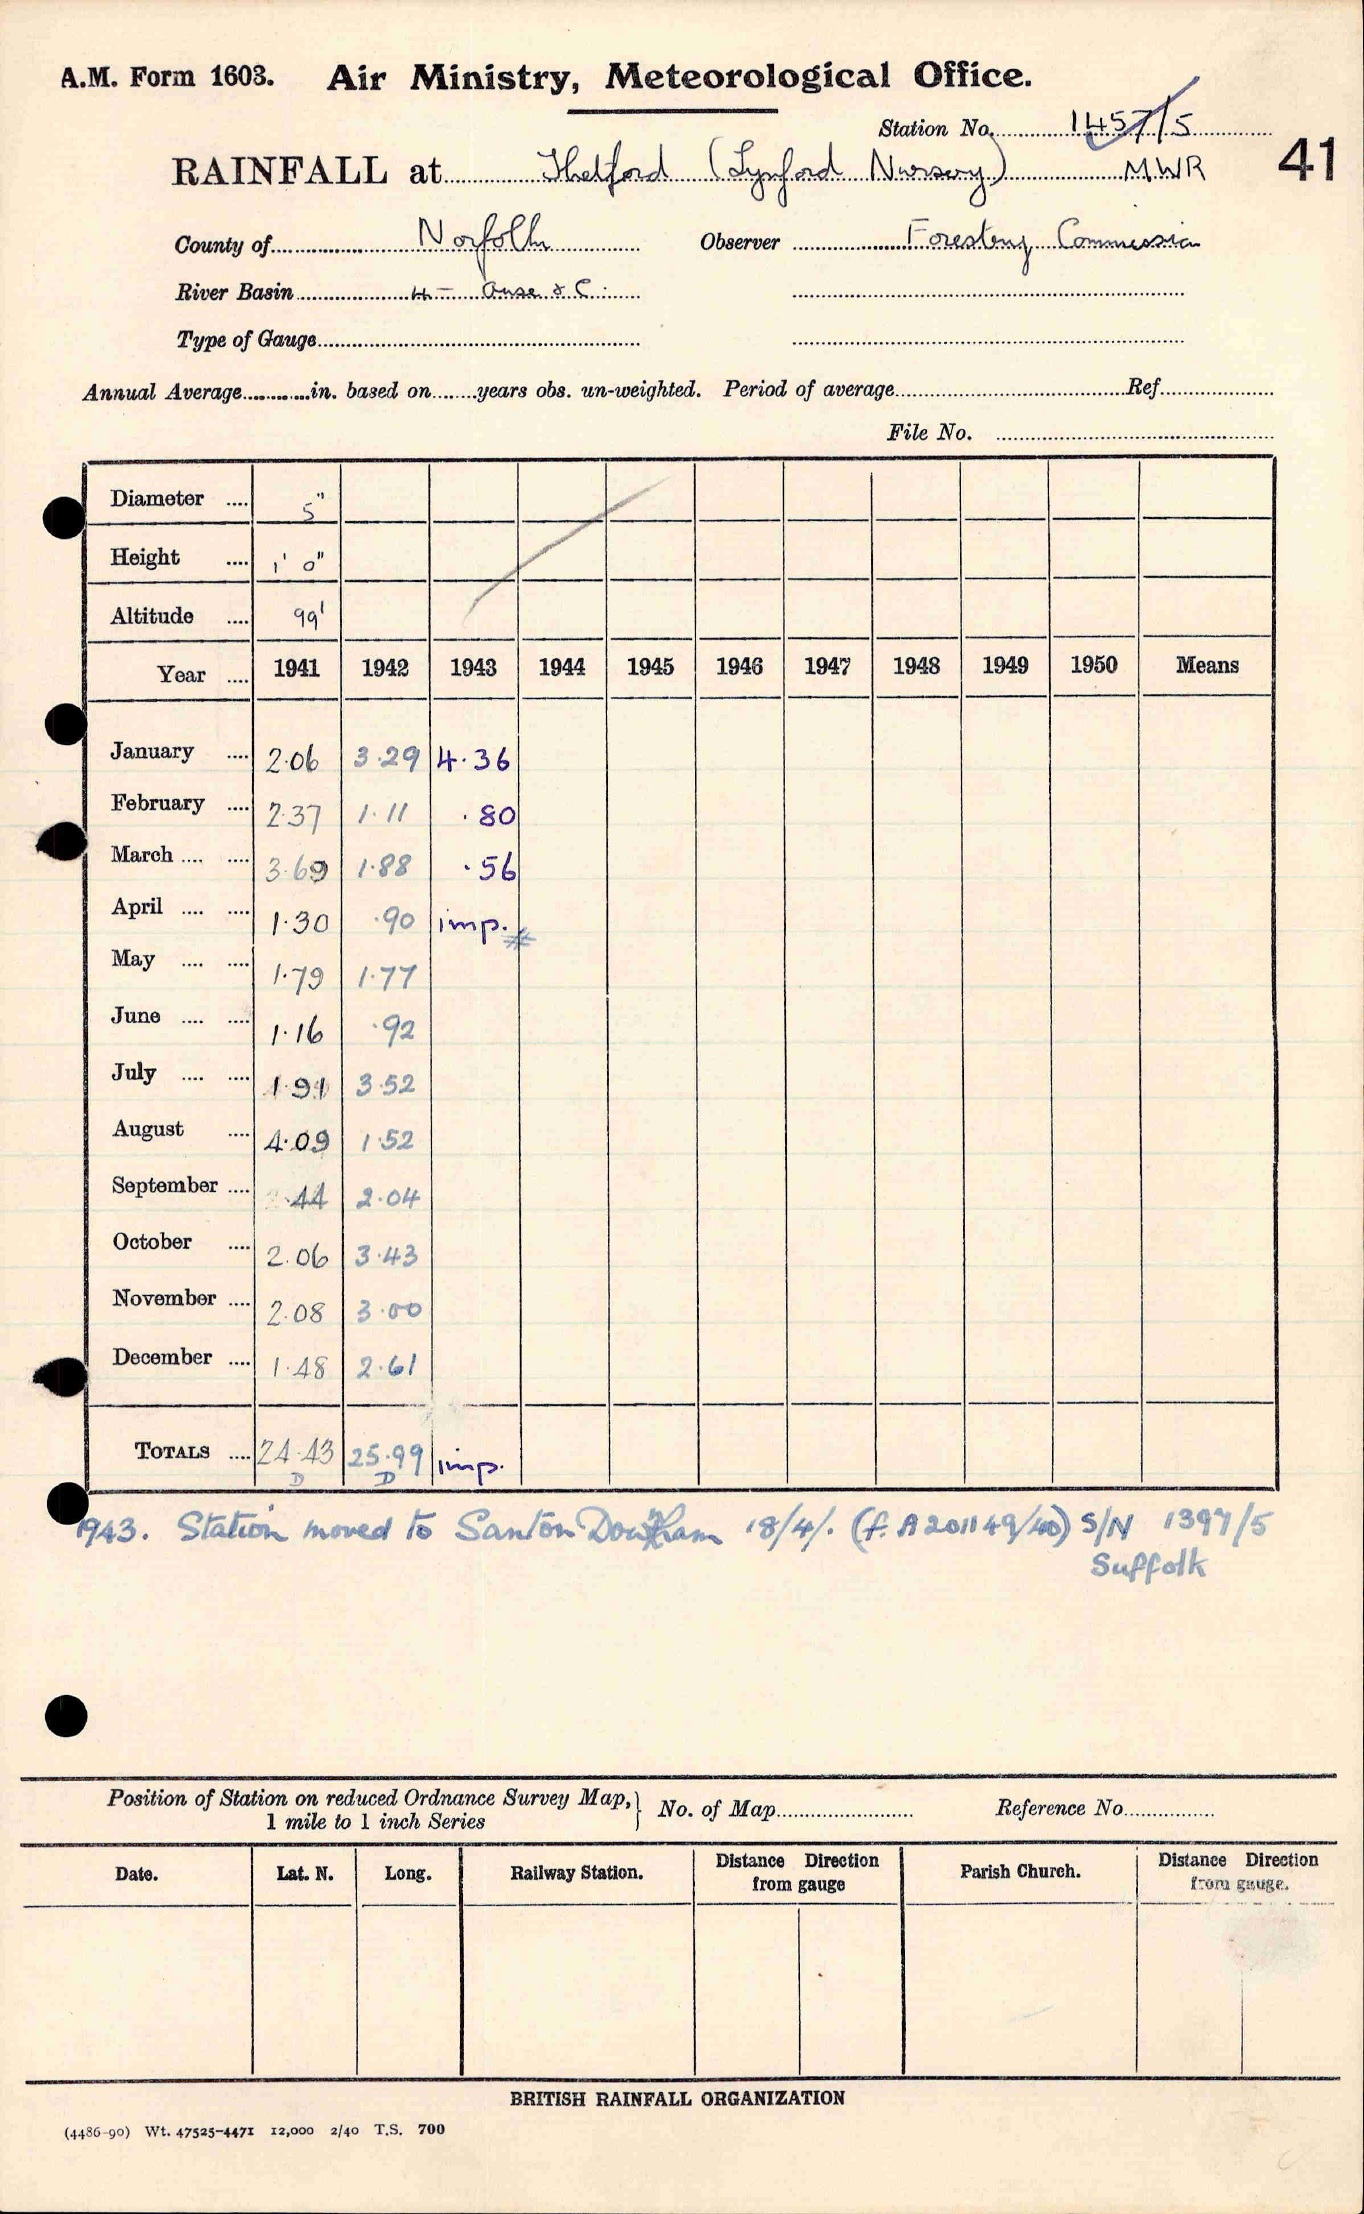 A.M. Form 1603. Air Ministry, Meteorological Office.
Station No. 1457/5
RAINFALL at Thetford (Lynford Nursery) MWR
41
County of Norfolk Observer Forestry Commission
River Basin 4 - Ouse & C.
Type of Gauge
Annual Average in. based on years obs. un-weighted. Period of average Ref.
File No.
Diameter .... 5"
Height .... 1' 0"
Altitude .... 99'
Year .... 1941 1942 1943 1944 1945 1946 1947 1948 1949 1950 Means
January .... 2.06 3.29 4.36
February .... 2.37 1.11 .80
March .... .... 3.69 1.88 .56
April .... .... 1.30 .90 imp. #
May .... .... 1.79 1.77
June .... .... 1.16 .92
July .... .... 1.91 3.52
August .... 4.09 1.52
September .... .44 2.04
October .... 2.06 3.43
November .... 2.08 3.00
December .... 1.48 2.61
TOTALS .... 24.43 25.99 imp.
D D
1943. Station moved to Santon Downham 18/4/. (f. A201149/40) S/N 1397/5
Suffolk
Position of Station on reduced Ordnance Survey Map,} No. of Map Reference No.
1 mile to 1 inch Series
Date. Lat. N. Long. Railway Station. Distance Direction from gauge Parish Church. Distance Direction from gauge.
BRITISH RAINFALL ORGANIZATION
(4486-90) Wt. 47525-4471 12,000 2/40 T.S. 700